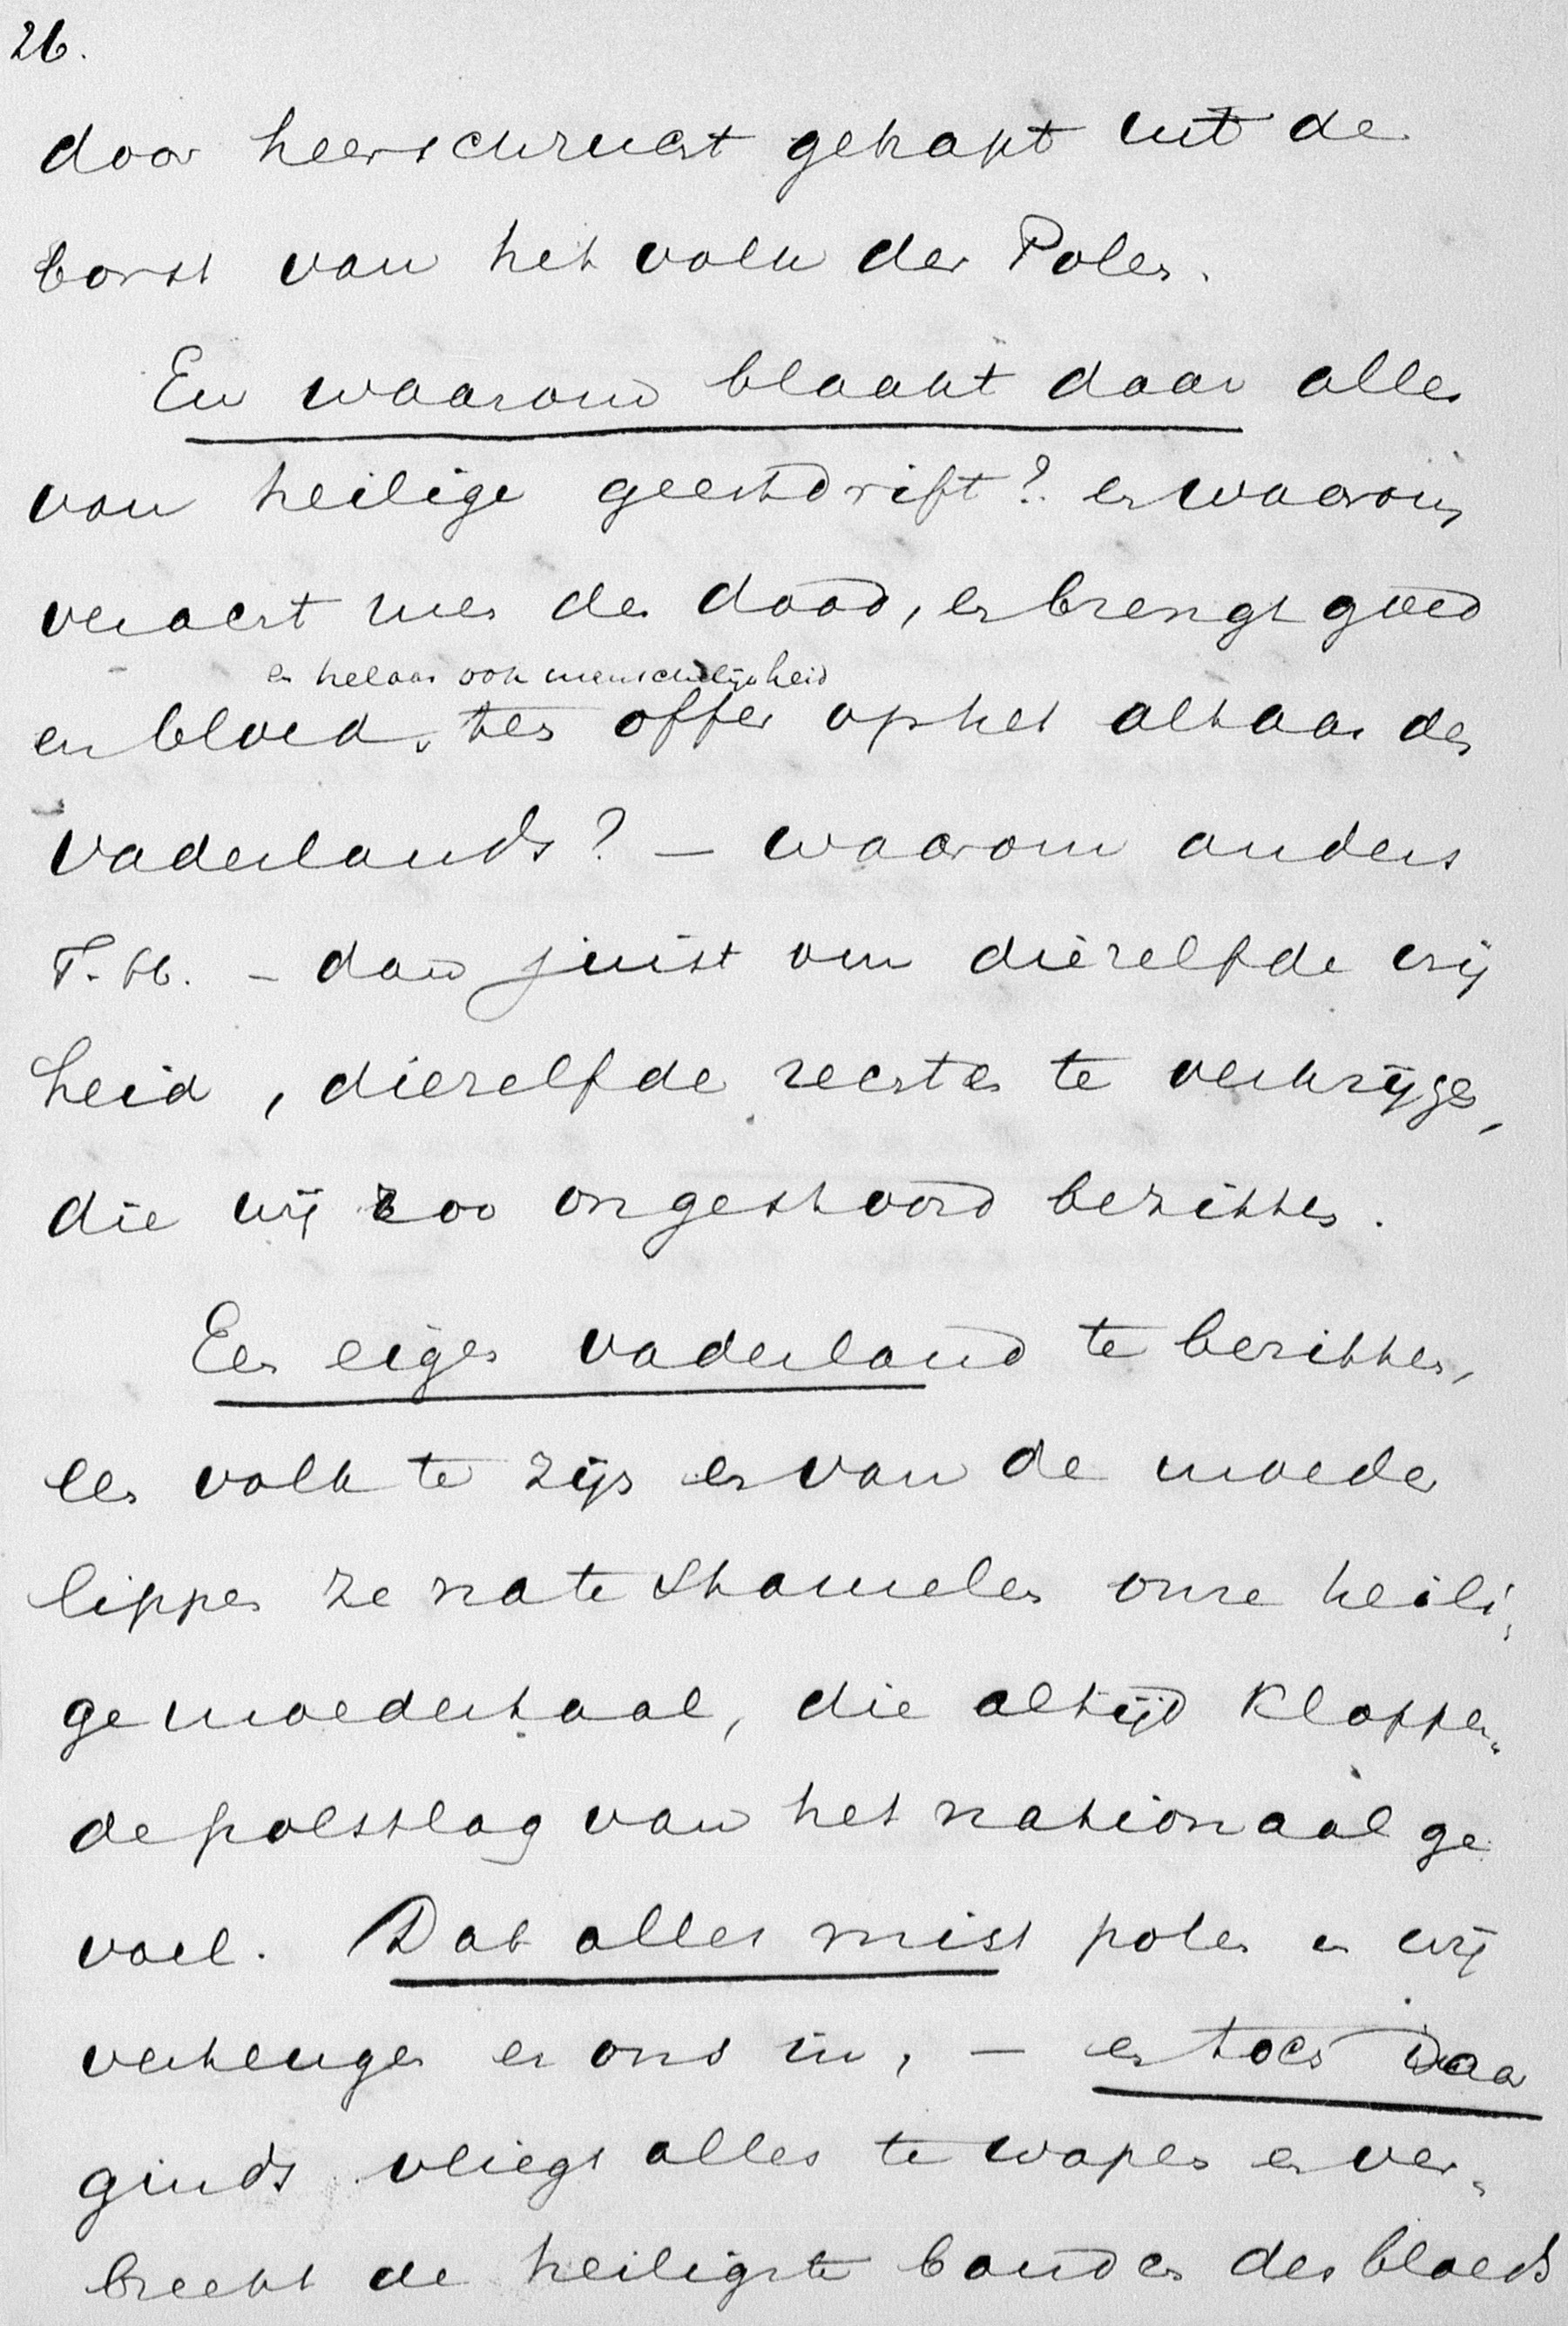 26.
door heerschzucht gehakt uit de
borst van het volk der Polen.
En waarom blaakt daar alles
van heilige geestdrift? en waarom
veracht men den dood, en brengt goed
en helaas ook menschelijkheid
en bloed ten offer op het altaar des
vaderlands? – waarom anders
T. H. – dan juist om diezelfde vrij
heid, diezelfde rechten te verkrijgen,
die wij zoo ongestoord bezitten.
Een eigen vaderland te bezitten,
een volk te zijn en van de moeder
lippen ze na te stamelen onze heili,
ge moedertaal, die altijd kloppen„
de polsslag van het nationaal ge
voel. Dat alles mist polen en wij
verheugen er ons in, – en toch daar
ginds vliegt alles te wapen en ver„
breekt de heiligste banden des bloeds